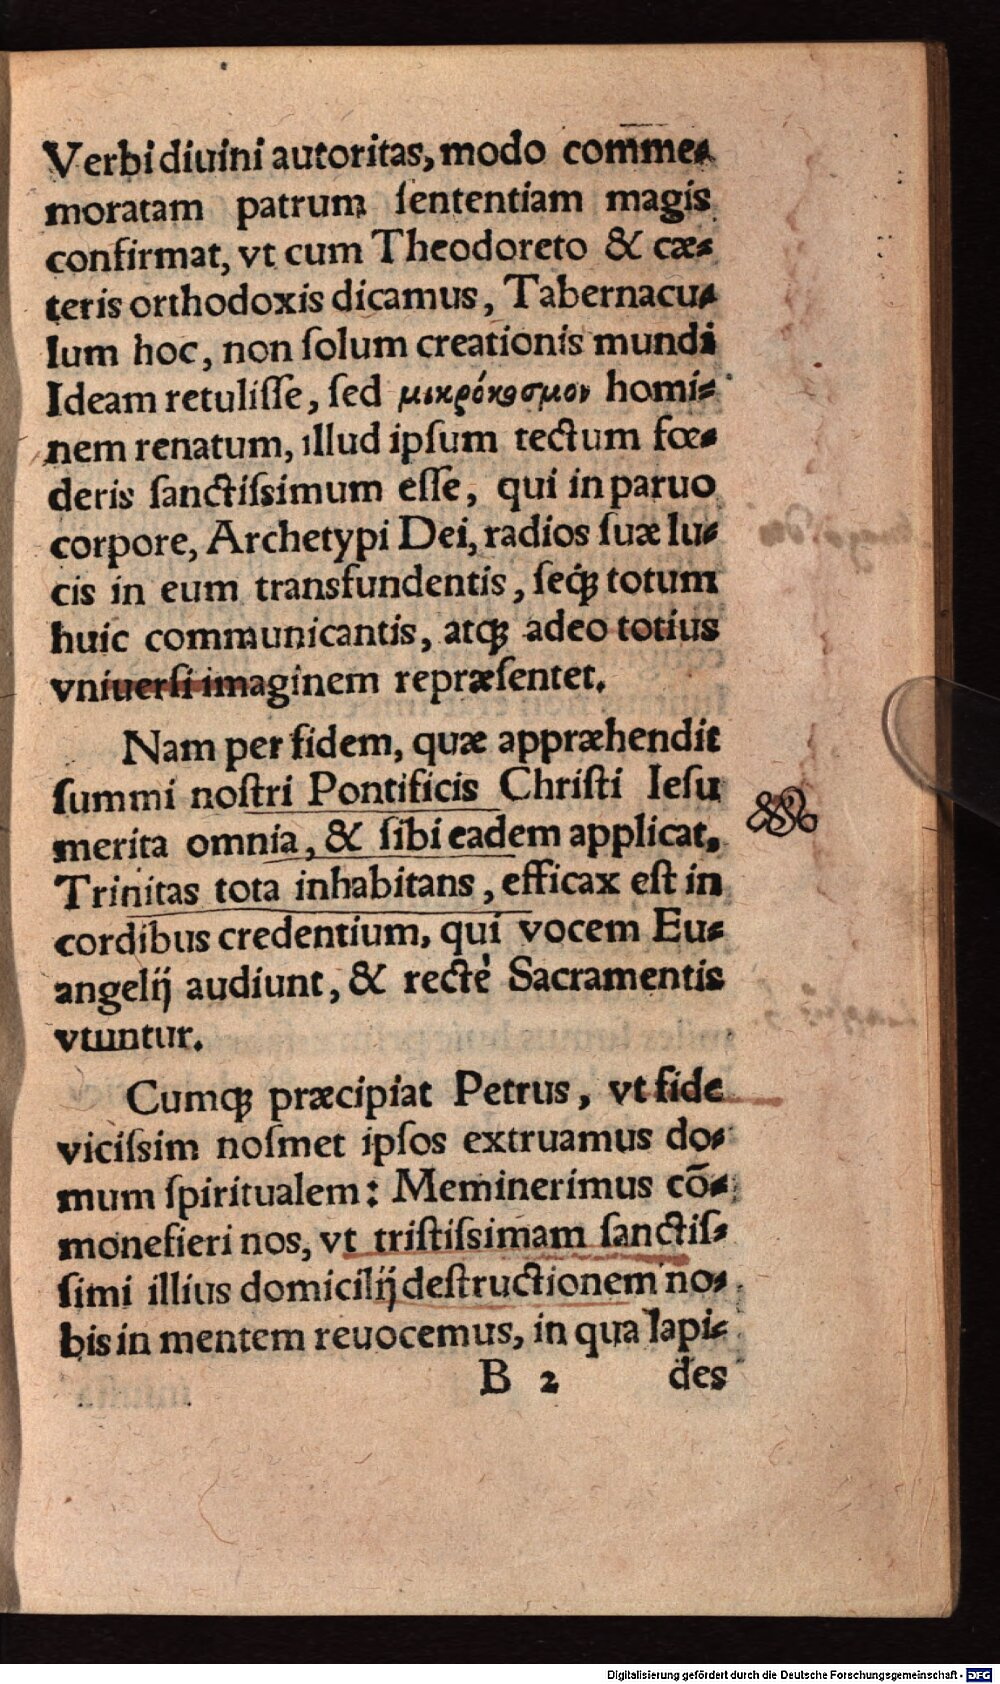 Verbi diuini autoritas, modo comme-
moratam patrum ſententiam magis
confirmat, vt cum Theodoreto & cæ-
teris orthodoxis dicamus, Tabernacu-
lum hoc, non ſolum creationis mundi
Ideam retuliſſe, ſed μικρόκοσμον homi-
nem renatum, illud ipſum tectum fœ-
deris ſanctiſsimum eſſe, qui in paruo
corpore, Archetypi Dei, radios ſuæ lu-
cis in eum transfundentis, ſeq́ꝫ totum
huic communicantis, atqꝫ adeo totius
vniuerſi imaginem repræſentet.
Nam per fidem, quæ appræhendit
ſummi noſtri Pontificis Chriſti Ieſu
merita omnia, & ſibi eadem applicat,
Trinitas tota inhabitans, efficax eſt in
cordibus credentium, qui vocem Eu-
angelij audiunt, & rectè Sacramentis
vtuntur.
Cumqꝫ præcipiat Petrus, vt fide
viciſsim noſmet ipſos extruamus do-
mum ſpiritualem: Meminerimus cõ-
monefieri nos, vt triſtiſsimam ſanctiſ-
ſimi illius domicilij deſtructionem no-
bis in mentem reuocemus, in qua lapi-
B 2 des
Digitalisierung gefördert durch die Deutsche Forschungsgemeinschaft - DFG